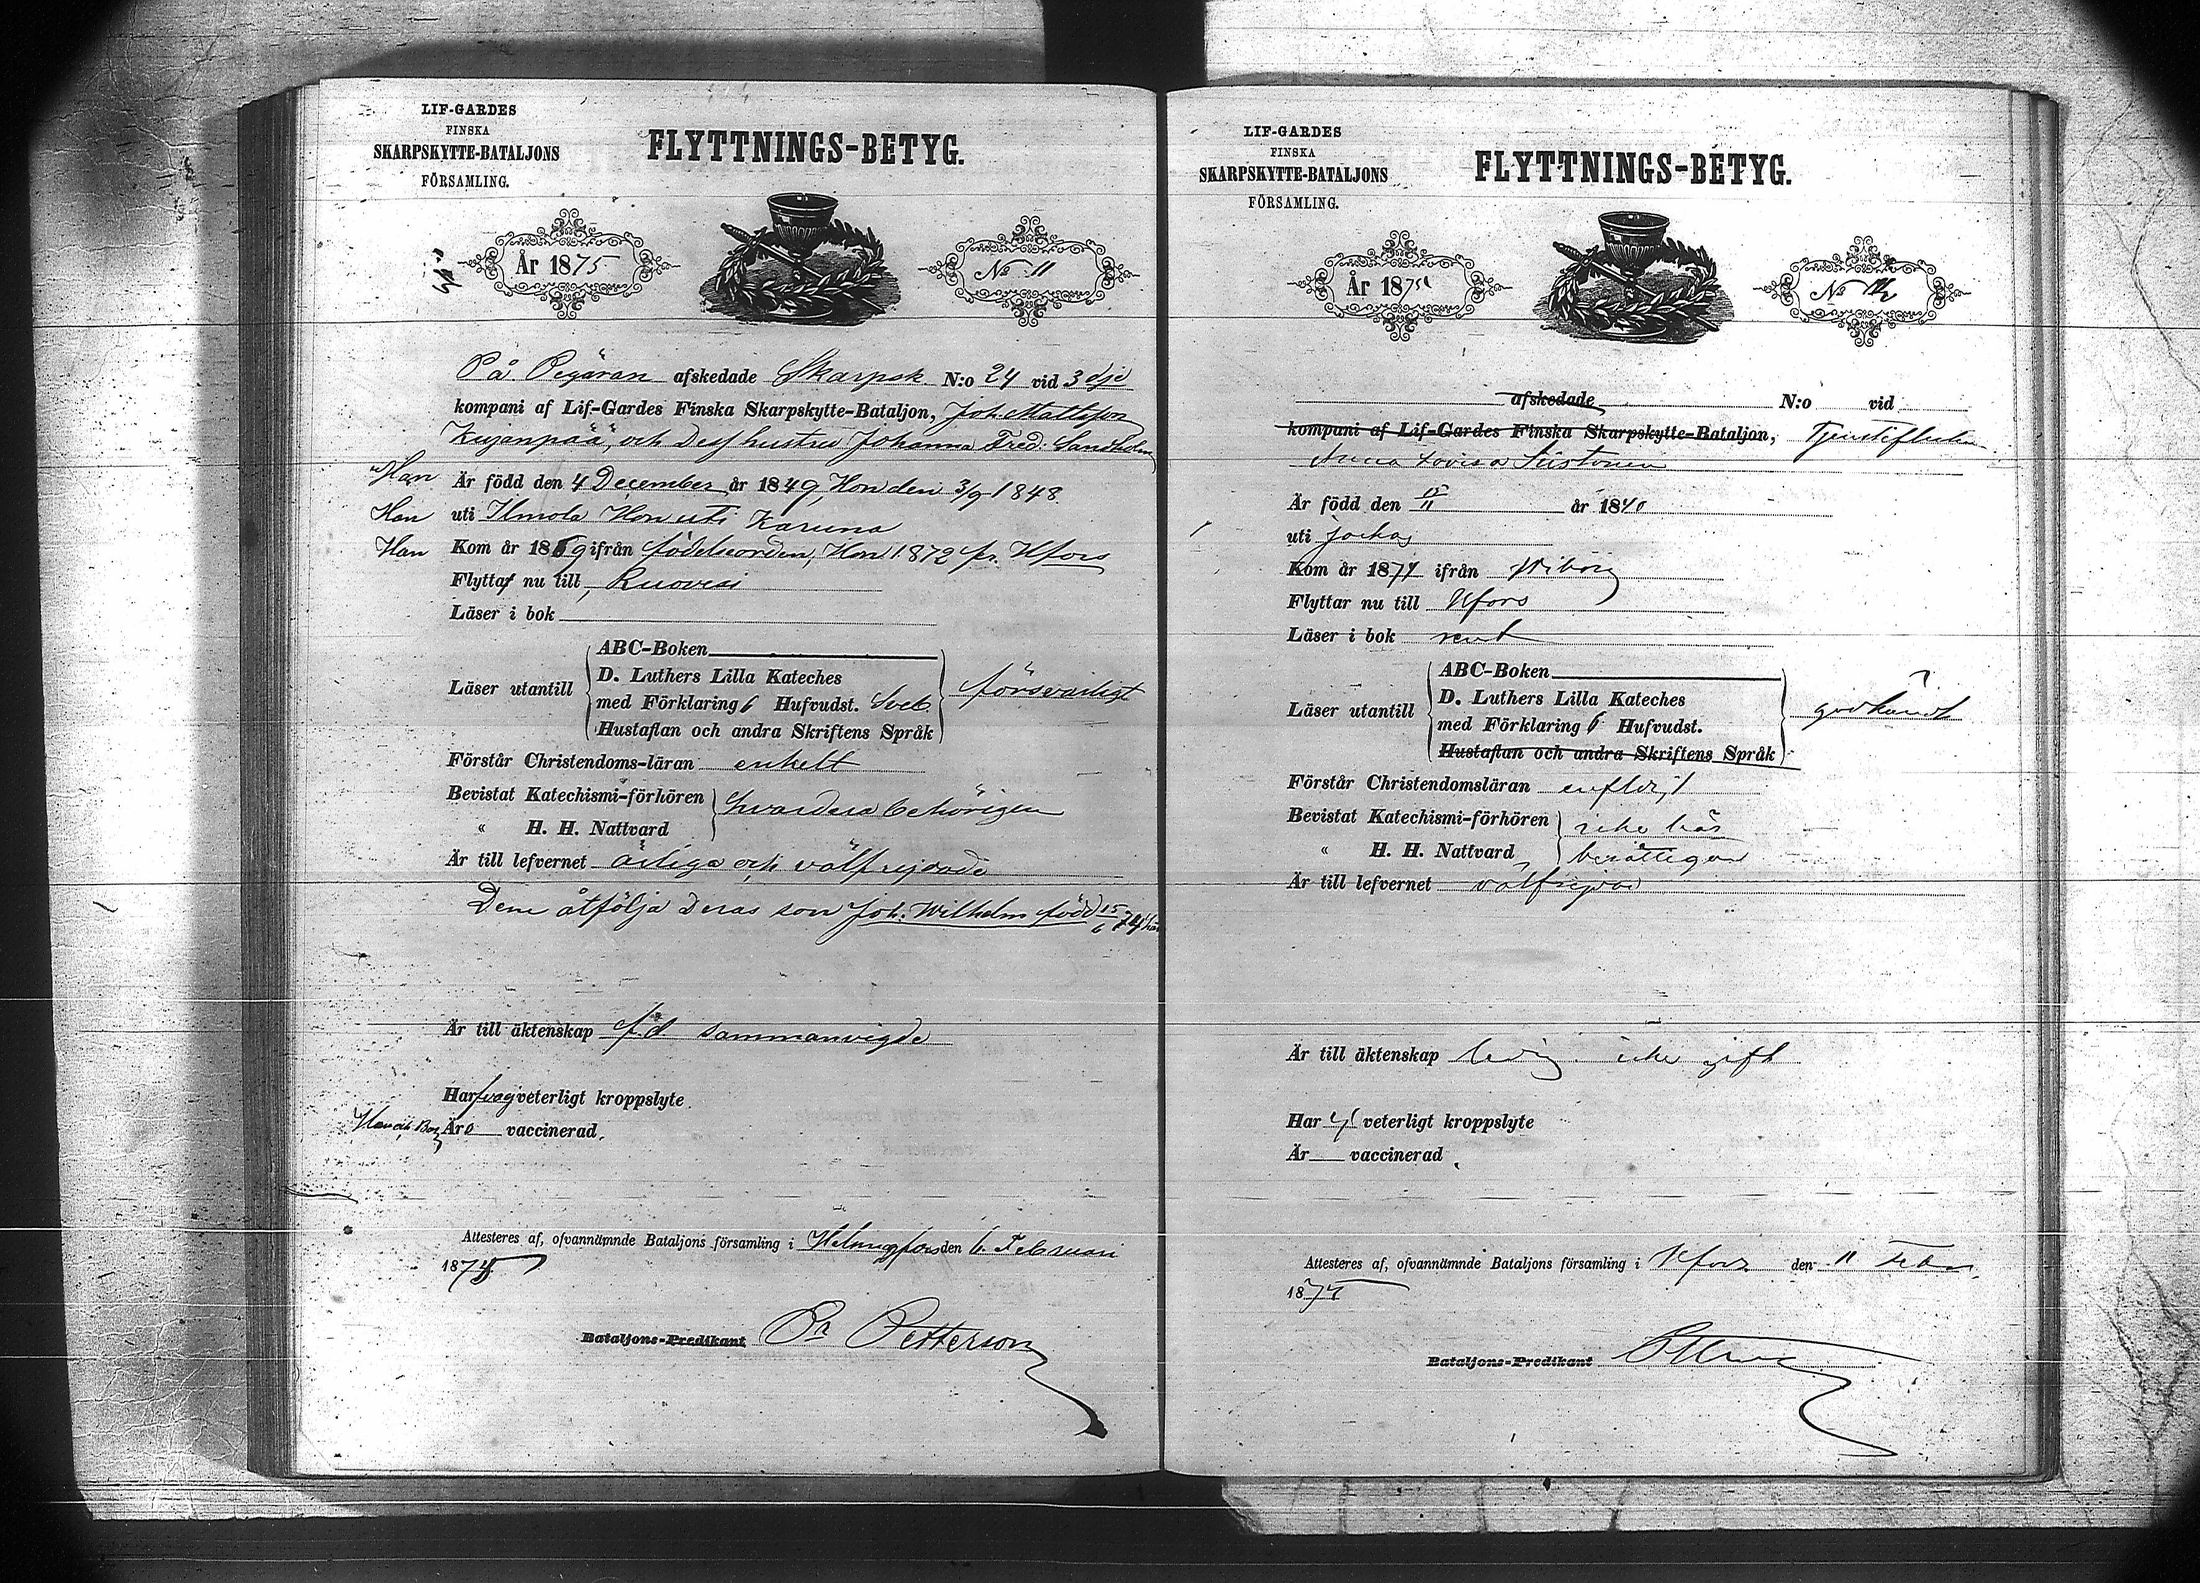 LIF-GARDES
FINSKA
SKARPSKYTTE-BATALJONS
FÖRSAMLING.
FLYTTNINGS-BETYG.
År 1875
No 11
På Begäran afskedade Skarpsk N:o 24 vid 3dje
kompani af Lif-Gardes Finska Skarpskytte-Bataljon, Joh. Mattsson
Kujanpää, och Dess hustru Johanna Fred. Sandholm
Han Är född den 4 December år 1849, Hon den 3/9 1848
Han uti Ilmola Hon uti Karuna
Han Kom år 1869 ifrån födelseorden, Hon 1872 fr. Hfors
Flytta nu till Ruovesi
Läser i bok
ABC-Boken
Läser utantill
D. Luthers Lilla Kateches
med Förklaring 6 Hufvudst. Sveb.
Hustaflan och andra Skriftens Språk
försvarligt
Förstår Christendoms-läran enkelt
Bevistat Katechismi-förhören
« H. H. Nattvard
hvardera behörigen
Är till lefvernet ärliga och välfrejdade
Dem åtfölja Deras son Joh. Wilhelm född 15/6 74
Är till äktenskap f.d sammanvigde
Har veterligt kroppslyte
Han och Barn Äro vaccinerad.
Attesteres af, ofvannämnde Bataljons församling i Helsingfors den 6 Februari
1875
Bataljons-Predikant Petterson
LIF-GARDES
FINSKA
SKARPSKYTTE-BATALJONS
FÖRSAMLING.
FLYTTNINGS-BETYG.
År 1875
No 12
afskedade N:o vid
kompani af Lif-Gardes Finska Skarpskytte-Bataljon, Tjensteflickan
Anna Lovisa
Är född den 15/11 år 1840
uti Jockas
Kom år 1874 ifrån Wiborg
Flyttar nu till Hfors
Läser i bok rent
ABC-Boken
Läser utantill
D. Luthers Lilla Kateches
med Förklaring 6 Hufvudst.
Hustaflan och andra Skriftens Språk
godkändt
Förstår Christendomsläran enfldigt
Bevistat Katechismi-förhören
« H. H. Nattvard
icke här
berättigad
Är till lefvernet välfrejdad
Är till äktenskap ledig icke gift
Har ej veterligt kroppslyte
Är vaccinerad
Attesteres af, ofvannämnde Bataljons församling i Hfors den 11 Febr.
1875
Bataljons-Predikant